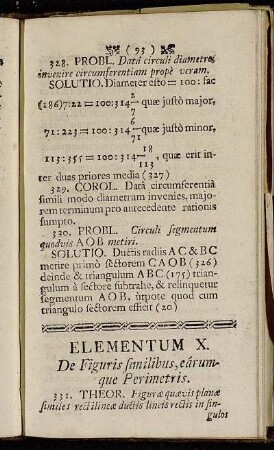 (93)
328. PROBL. Datâ circuli diametro,
invenire circumferentiam propè veram.
SOLUTIO. Diameter esto = 100: fac
(186) 7:22 = 100:314 2/7 quæ justò major,
71:223 = 100:314 6/7 quæ justò minor,
113:355 = 100:314 18/113, quæ erit in-
ter duas priores media (327)
329. COROL. Datâ circumferentiâ
simili modo diametrum invenies, majo-
rem terminum pro antecedente rationis
sumpto.
330. PROBL. Circuli segmentum
quodvis AOB metiri.
SOLUTIO. Ductis radiis AC & BC
metire primò sectorem CAOB (326)
deinde & triangulum ABC (175) trian-
gulum à sectore subtrahe, & relinquetur
segmentum AOB, ùtpote quod cum
triangulo sectorem efficit (20)
ELEMENTUM X.
De Figuris similibus, eárum-
que Perimetris.
331. THEOR. Figuræ quævis planæ
similes rectilineæ ductis lineis rectis in sin-
gulos